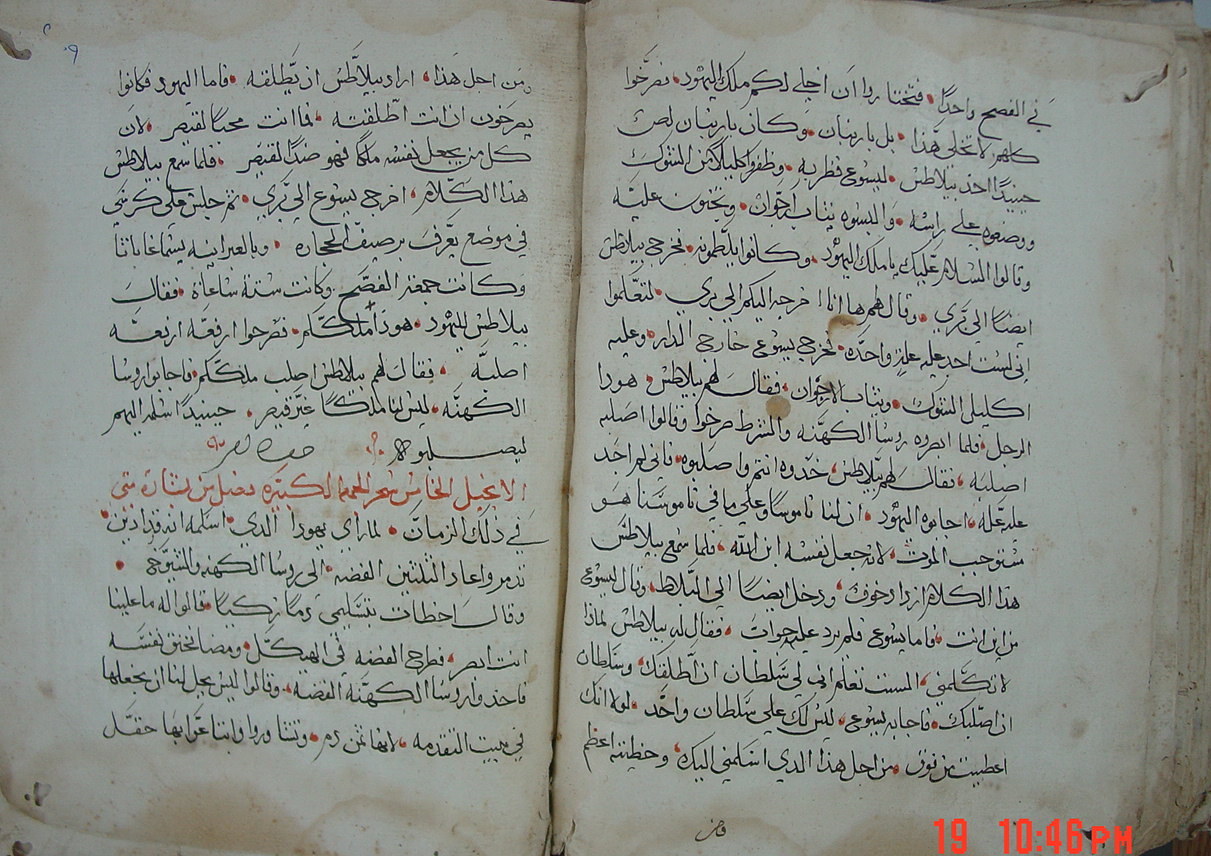 في الفصح واحدًا • فتختاروا أن اخلي لكم ملك اليهود • فصرخوا
كلهم لا تخلي هذا • بل باربنان • وكان باربنان لص
حينيدًا اخد بيلاطس • ليسوع فضربه • وظفروا كليلاً من الشوك
ووضعوه علي راسه • والبسوه ثياب ارجوان • ويجتون عليه
وقالوا السلام عليك يا ملك اليهود • وكانوا يلطمونه • فخرج بيلاطس
ايضًا الي بري • وقال لهم هاانا اخرجه اليكم الي بري • لتعلموا
اني لست اجد عليه علةٍ واحده • فخرج يسوع خارج الدار • وعليه
اكليل الشوك • وثياب الارجوان • فقال لهم بيلاطس • هودا
الرجل • فلما ابصروه روسا الكهنه والشرط صرخوا وقالوا اصلبه
اصلبه • فقال لهم بيلاطس • خدوه انتم واصلبوه • فاني لم اجد
عليه علة • اجابوه اليهود • ان لنا ناموسًا وعلي ما في ناموسنا هو
مستوجب الموت • لانه جعل نفسه ابن الله • فلما سمع بيلاطس
هذا الكلام ازداد خوف • ودخل ايضًا الي البلاط • وقال ليسوع
من اين انت • فاما يسوع فلم يرد عليه جواب • فقال له بيلاطس لماذا
لا تكلمني • الست تعلم اني لي سلطان ان اطلقك • وسلطان
ان اصلبك • فاجابه يسوع • ليس لك علي سلطان واحد • لولا انك
اعطيت من فوق • من اجل هذا الدي اسلمني اليك • وخطيته اعظم
ومن اجل هذا • اراد بيلاطس ان يطلقه • فاما اليهود فكانوا
يصرخون ان انت اطلقته • فما انت محبًا لقيصر • لان
كل من يجعل نفسه ملكًا فهو ضدًا لقيصر • فلما سمع بيلاطس
هذا الكلام • اخرج يسوع الي بري • تم جلس علي كرسي
في موضع يعرف برصيف الحجاره • وبالعبرانيه يسما غاباتا
وكانت جمعة الفصح وكانت ستة ساعاة • فقال
بيلاطس لليهود • هودا ملككم • فصرخوا ارفعه ارفعه
اصلبه • فقال لهم بيلاطس اصلب ملككم • فاجابوا روسا
الكهنه • ليس لنا ملكًا غير قيصر • حينيدًا اسلمه اليهم
ليصلبوه
الانجيل الخامس سحر الجمعه الكبيره فصل من بشارة متي
في ذلك الزمان • لما راي يهودا الدي اسلمه انه قد ادين •
تدمر واعاد التلتين الفضه • الي روسا الكهنه والشيوخ •
وقال اخطات بتسليمي دمًا زكيًا • قالوا له ما علينا
انت ابصر • فطرح الفضه في الهيكل • ومضا فخنق نفسه
فاخدوا روسا الكهنه الفضه • وقالوا ليس يحل لنا ان نجعلها
في بيت التقدمه • لانها تمن دم • وتشاوروا وابتاعوا بها حقل
19 10:46PM